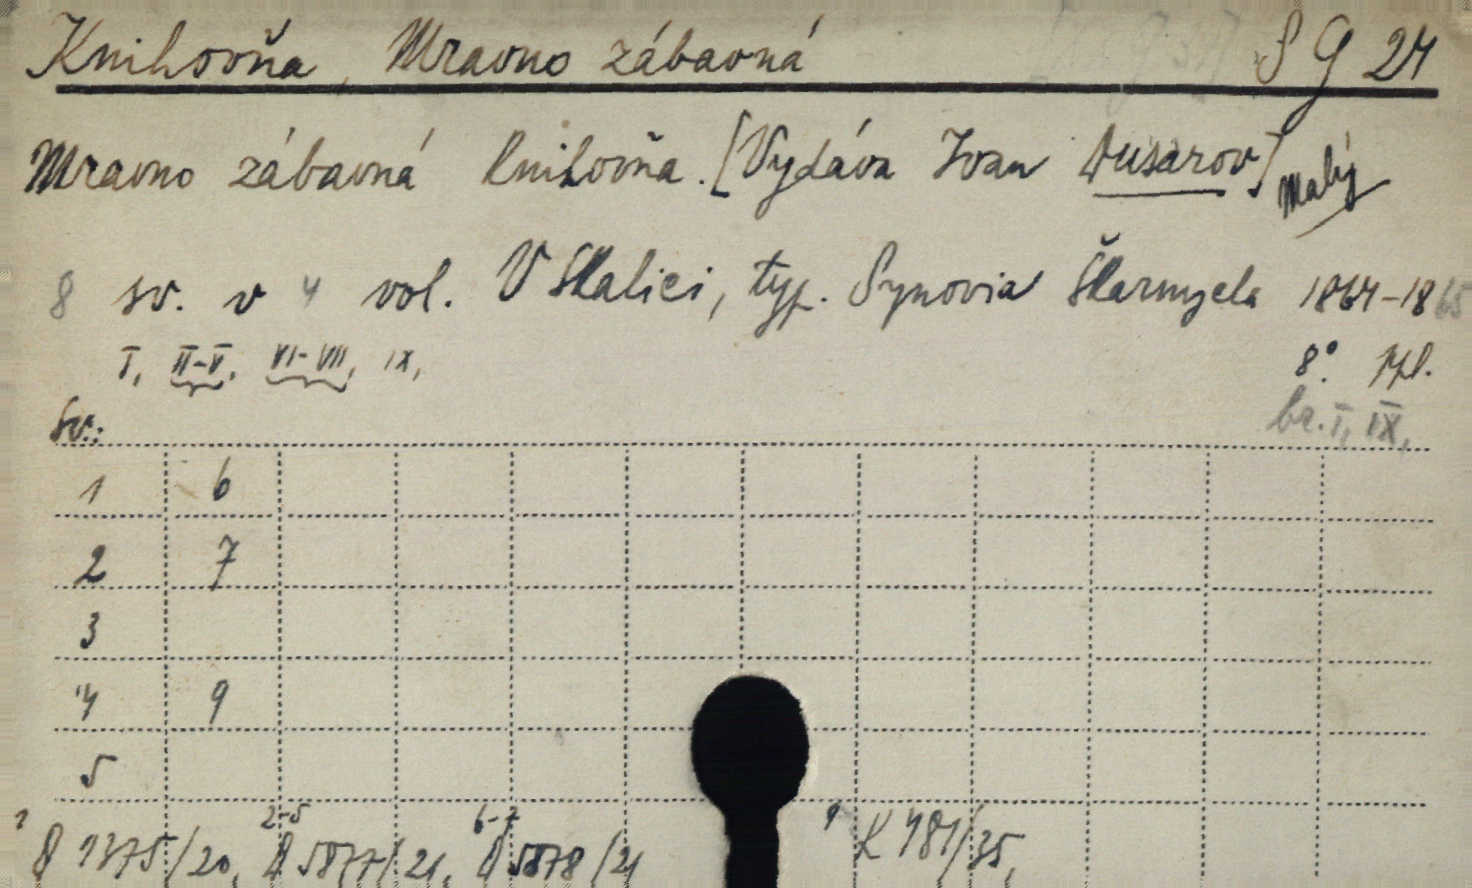 Knihovňa, Mravno zábavná S G 24
Mravno zábavná knihovňa. [Vydáva Ivan Dusarov] Malý
8 sv. v 4 vol. V Skalici, typ. Synovia Škarnycla 1864-1865
I, II-V, VI-VII, IX, 8°. ppl.
Sv.: br. I, IX,
1 6
2 7
3
4 9
5
1 2-5 6-7 9
D 1375/20, D 5877/21, D 5878/21 K 481/35,